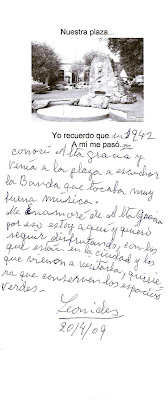 Nuestra plaza...
Yo recuerdo que...en 1942
A mi me pasó...
conocí Alta gracia y
venía a la plaza a escuchar
la Banda que tocaba muy
buena musica.
Me enamoré de Alta Gracia
por eso estoy aquí y quiero
seguir disfrutando, con los
que están en la ciudad y los
que vienen a visitarla, quisie
ra que conserven los espacios
verdes.
Leonides
20/4/09